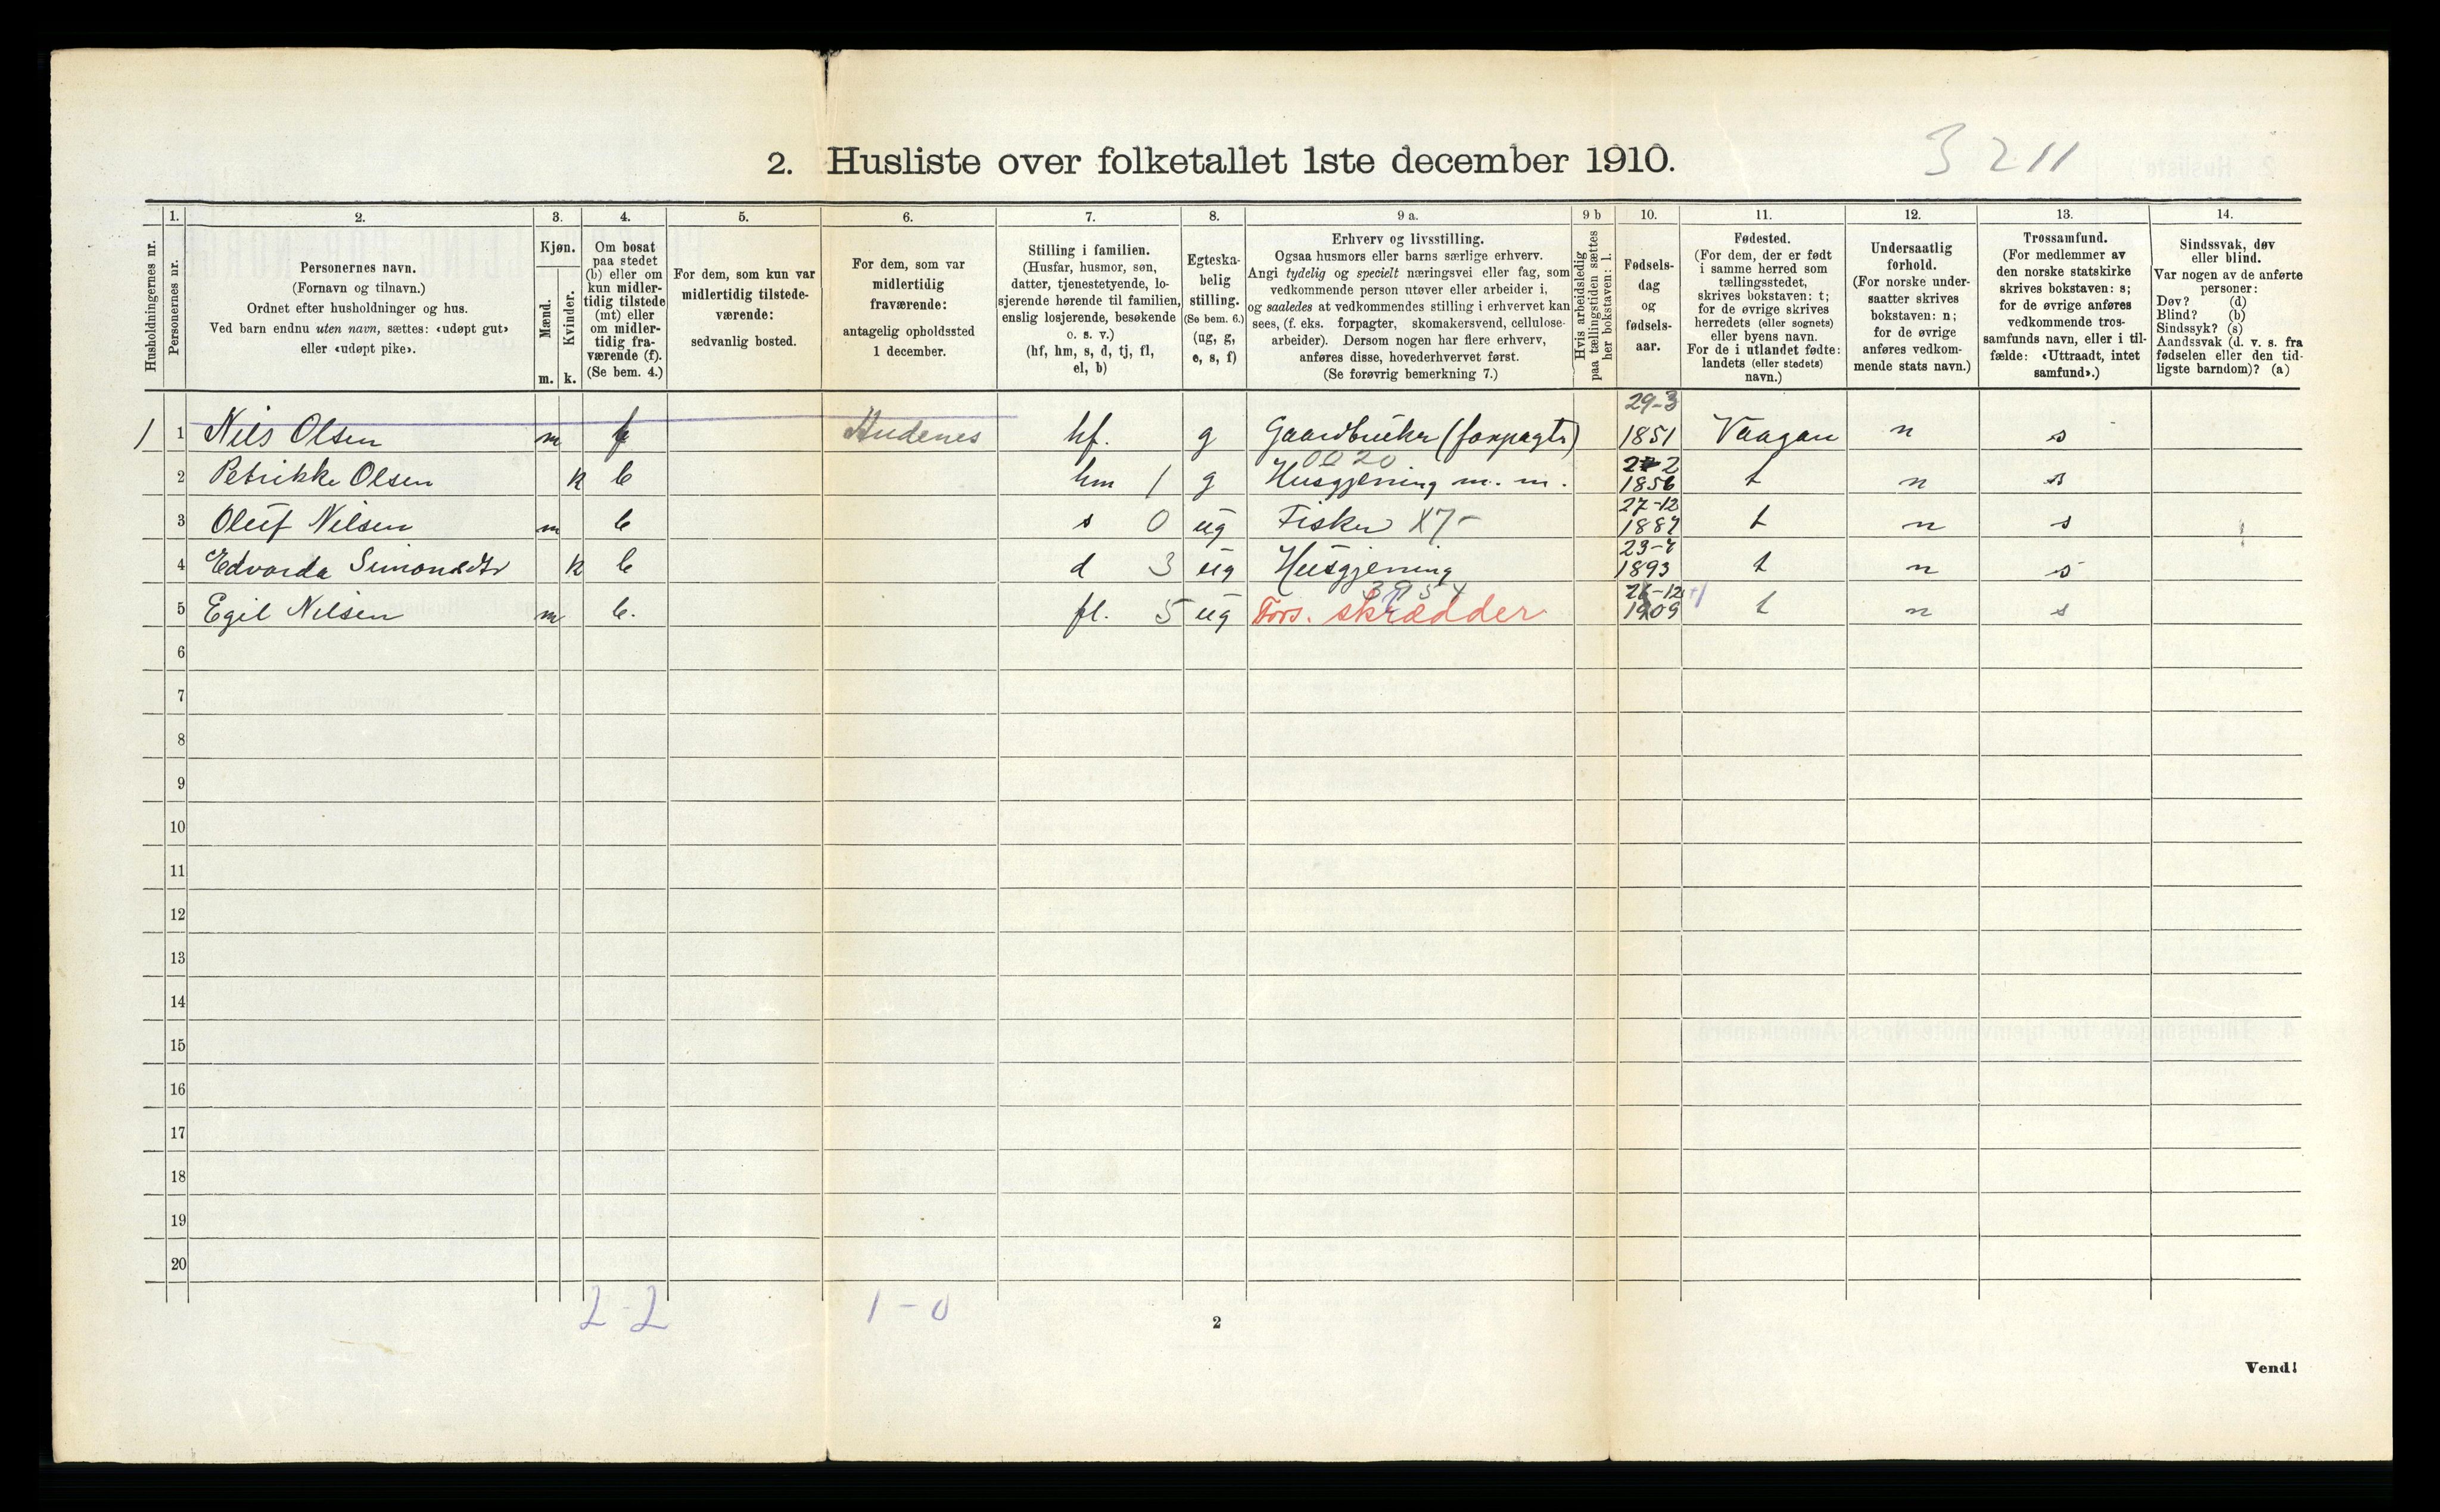 2. Husliste over folketallet 1ste december 1910.
3211
Husholdningernes nr.
1.
Personernes nr.
2.
Personernes navn.
(Fornavn og tilnavn.)
Ordnet efter husholdninger og hus.
Ved barn endnu uten navn, sættes: «udøpt gut»
eller «udøpt pike».
3.
Kjøn.
Mænd.
m.
Kvinder.
k.
4.
Om bosat
paa stedet
(b) eller om
kun midler-
tidig tilstede
(mt) eller
om midler-
tidig fra-
værende (f).
(Se bem. 4.)
5.
For dem, som kun var
midlertidig tilstede-
værende:
sedvanlig bosted.
6.
For dem, som var
midlertidig
fraværende:
antagelig opholdssted
1 december.
7.
Stilling i familien.
(Husfar, husmor, søn,
datter, tjenestetyende, lo-
sjerende hørende til familien,
enslig losjerende, besøkende
o. s. v.)
(hf, hm, s, d, tj, fl,
el, b)
8.
Egteska-
belig
stilling.
(Se bem. 6.)
(ug, g,
e, s, f)
9 a.
Erhverv og livsstilling.
Ogsaa husmors eller barns særlige erhverv.
Angi tydelig og specielt næringsvei eller fag, som
vedkommende person utøver eller arbeider i,
og saaledes at vedkommendes stilling i erhvervet kan
sees, (f. eks. forpagter, skomakersvend, cellulose-
arbeider). Dersom nogen har flere erhverv,
anføres disse, hovederhvervet først.
(Se forøvrig bemerkning 7.)
9 b
Hvis arbeidsledig
paa tællingstiden sættes
her bokstaven: l.
10.
Fødsels-
dag
og
fødsels-
aar.
11.
Fødested.
(For dem, der er født
i samme herred som
tællingsstedet,
skrives bokstaven: t;
for de øvrige skrives
herredets (eller sognets)
eller byens navn.
For de i utlandet fødte:
landets (eller stedets)
navn.)
12.
Undersaatlig
forhold.
(For norske under-
saatter skrives
bokstaven: n;
for de øvrige
anføres vedkom-
mende stats navn.)
13.
Trossamfund.
(For medlemmer av
den norske statskirke
skrives bokstaven: s;
for de øvrige anføres
vedkommende tros-
samfunds navn, eller i til-
fælde: «Uttraadt, intet
samfund».)
14.
Sindssvak, døv
eller blind.
Var nogen av de anførte
personer:
Døv? (d)
Blind? (b)
Sindssyk? (s)
Aandssvak (d. v. s. fra
fødselen eller den tid-
ligste barndom)? (a)
1 1 Nils Olsen m f hf. g Gaardbruker (forpagter) 29-3 1851 Vaagan n s
2 Petrikke Olsen k b hm 1 g 0020 Husgjerning m. m. 2 1856 t n s
3 Oluf Nilsen m b s 0 ug Fisker X7- 27-12 1887 t n s
4 Edvarda Simonsdtr k b d 3 ug Husgjerning 1893 t n s
5 Egil Nilsen m b. fl. 5 ug Fors. skrædder 1909 t n s
6
7
8
9
10
11
12
13
14
15
16
17
18
19
20
2-2 1-0
2
Vend!